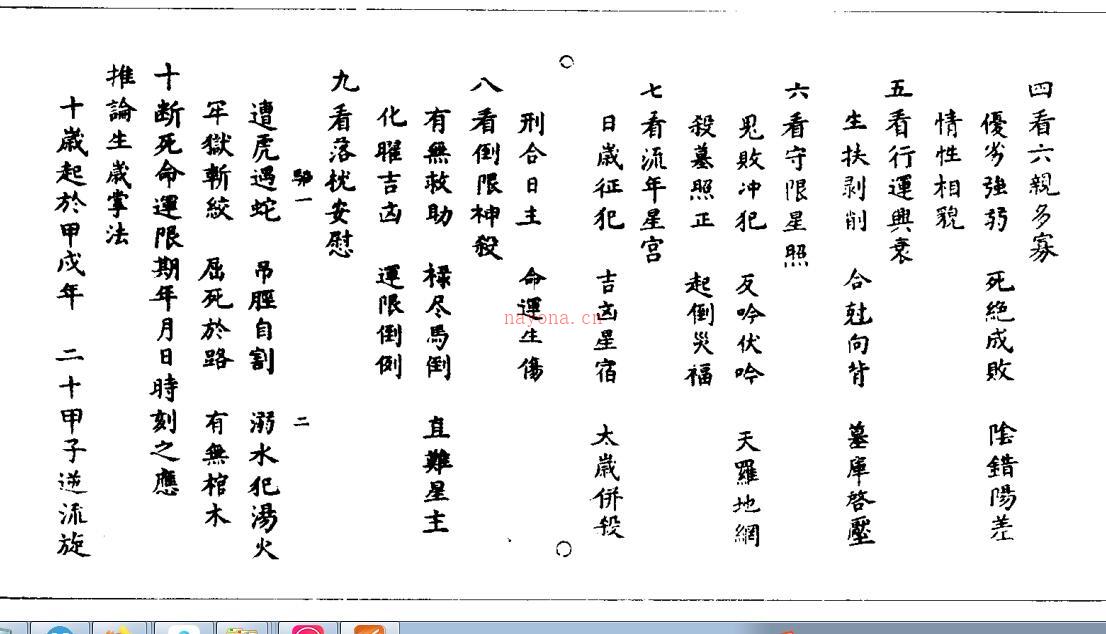 四看六親多寡
優劣強弱 死絕成敗 陰錯陽差
情性相貌
五看行運興衰
生扶剥削 合尅向背 墓庫啓壓
六看守限星照
冲犯 反吟伏吟 天羅地網
殺墓照正 起倒災福
七看流年星宮
日歲征犯 吉凶星宿 太歲併殺
刑合日主 命運生傷
八看倒限神殺
有無救助 禄尽馬倒 直難星主
化曜吉凶 運限倒例
九看落枕安慰
一 二
遭虎遇蛇 吊脛自割 溺水犯湯火
牢獄斬絞 屈死於路 有無棺木
十断死命運限期年月日時刻之應
推論生歲掌法
十歲起於甲戌年 二十甲子逆流旋
nayona.cn